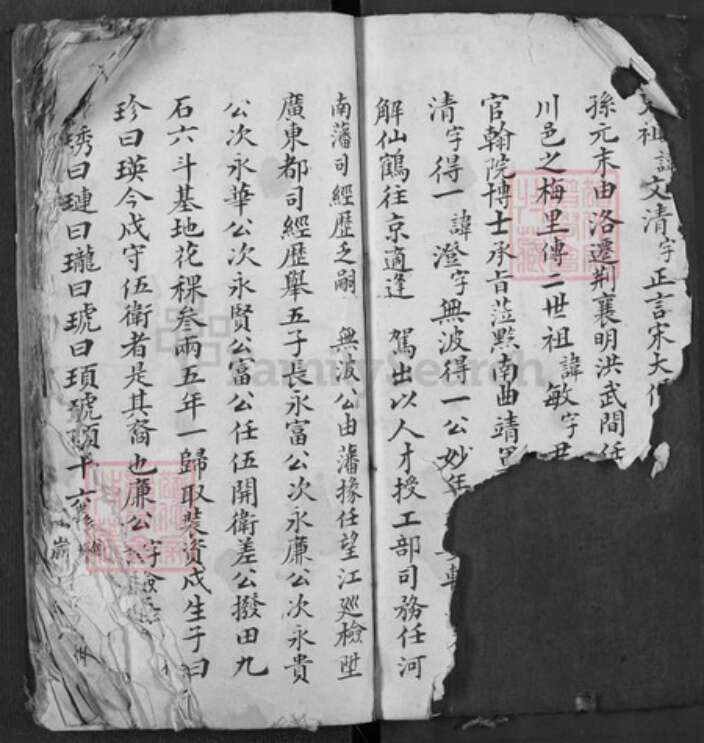 祖諱文清字正言宋大
孫元末由洛遷荆襄明洪武間任
川邑之梅里傳二世祖諱敏字
官翰院博士承旨蒞黔南曲靖
清字得一 諱澄字無波得一公妙年
解仙鶴往京適逢 駕出以人才授工部司務任河
南藩司經歷乏嗣 無波公由藩掾任望江廵檢陞
廣東都司經歷舉五子長永富公次永廉公次永貴
公次永華公次永賢公富公任伍開衛差公撥田九
石六斗基地花稞叁兩五年一歸取裝資戍生子曰
珍曰瑛今戍守伍衛者是其裔也廉公字
琇曰璉曰瓏曰琥曰頊號頊十六
FamilySearch